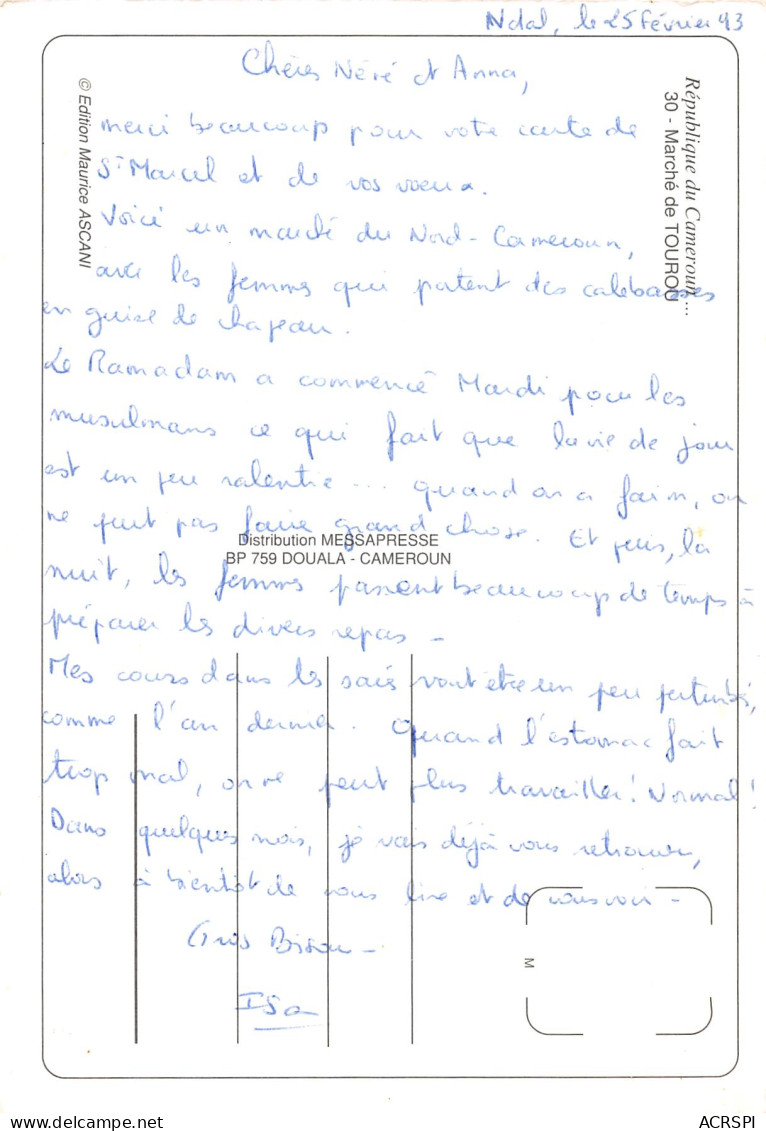 Ndal, le 25 février 93
Chères Néné et Anna,
merci beaucoup pour votre carte de
St Marcel et de vos voeux.
Voici un marché du Nord-Cameroun,
avec les femmes qui portent des calebasses
en guise de chapeau.
Le Ramadam a commencé Mardi pour les
musulmans ce qui fait que la vie de jour
est un peu ralentie ... quand on a faim, on
ne peut pas faire grand chose. Et puis, la
nuit, les femmes passent beaucoup de temps à
préparer les divers repas -
Mes cours dans les vont être un peu perturbés,
comme l'an dernier. Quand l'estomac fait
trop mal, on ne peut plus travailler! Normal!
Dans quelques mois, je vais déjà vous retrouver,
alors à bientôt de vous lire et de vous voir -
Gros Bisou -
ISa
République du Cameroun...
30 - Marché de TOUROU
© Edition Maurice ASCANI
Distribution MESSAPRESSE
BP 759 DOUALA - CAMEROUN
M
ACRSPI